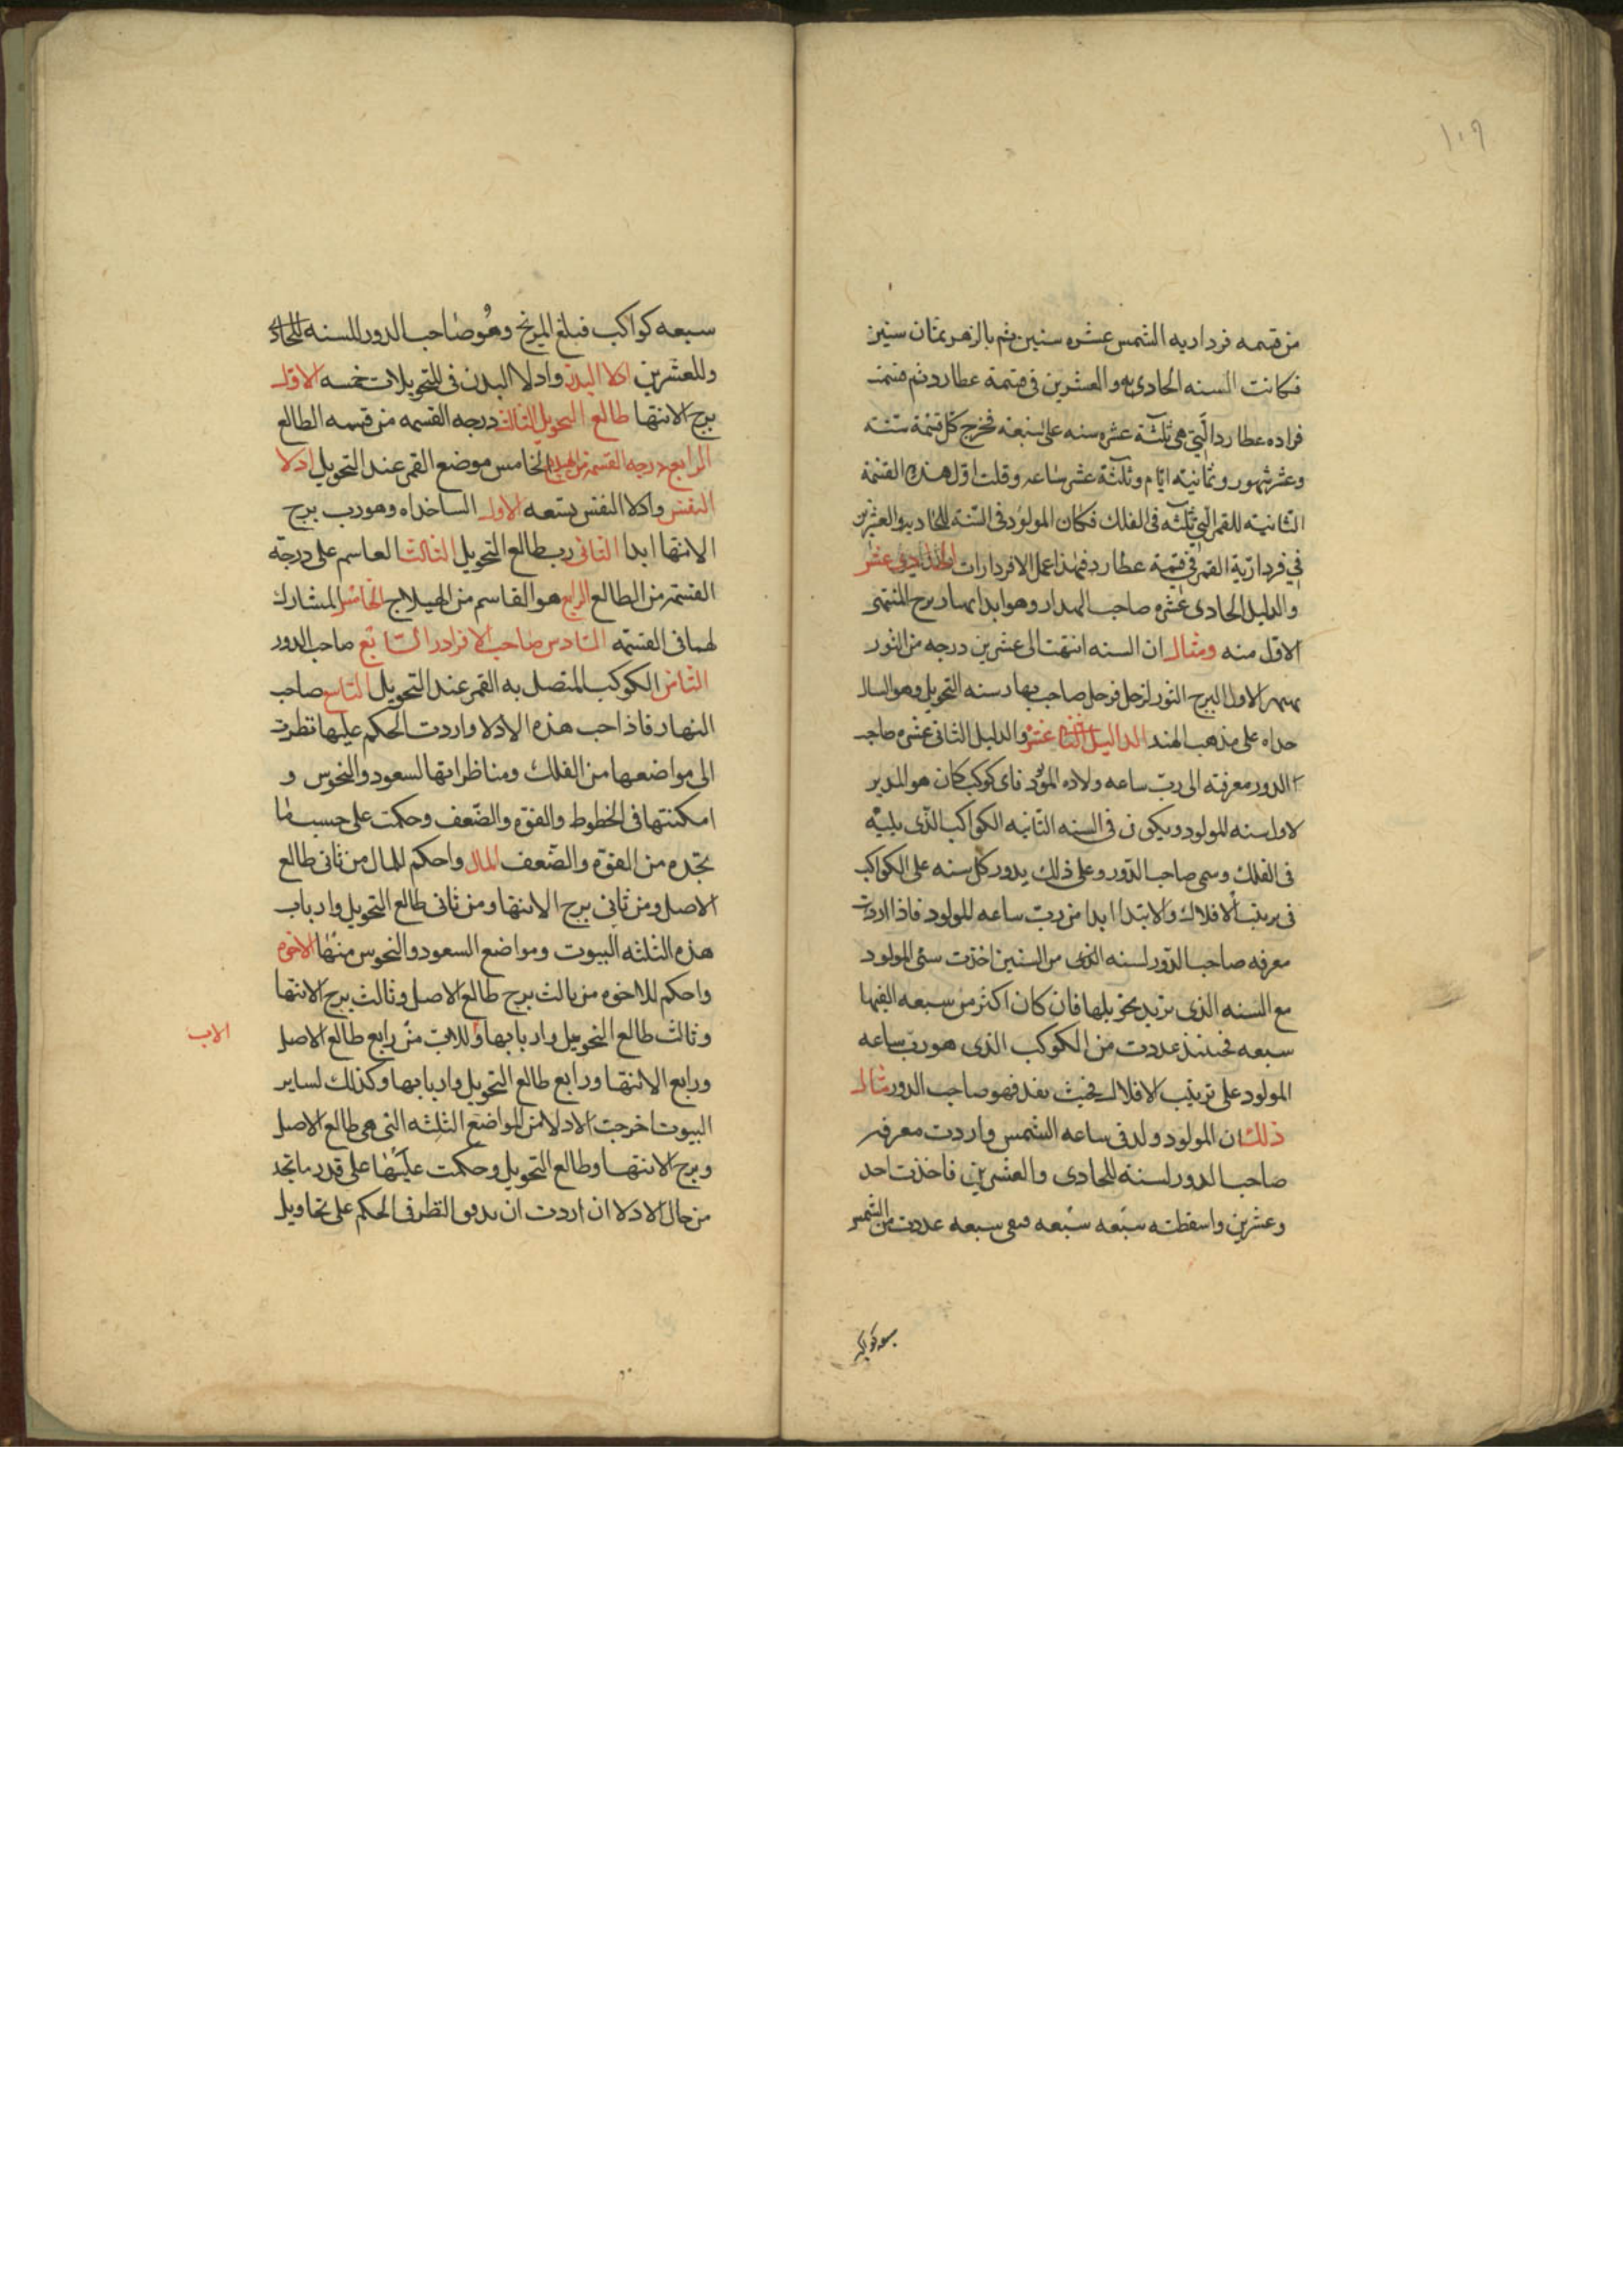 ١٠٩
من قسمه فرداريه الشمس عشره سنين ثم بالزهر ثمان سنين
فكانت السنه الحادى به والعشرين فى قتمة عطارد ثم قتمت
فراده عطارد الّتى هى ثلثة عشره سنه على سبعة فخرج كل قتمة سنه
وعشر شهور وثمانية ايّام وثلثة عشر ساعه وقلت اول هذه القتمة
الثانية للقمر الّتى ثلثه فى الفلك فكان المولود فى السّنة الحاديه والعشرين
فى فردارّية القمر فى قتمة عطارد فهذا عمل الافردارات الحادى عشر
والدليل الحادى عشره صاحب وهو ابدا برج المنتهى
الاوّل منه ومثال ان السنه انتهت الى عشرين درجه من الثور
الاول البرج الثور لزحل فزحل صاحب سنه التحويل وهو السال
حداه على مذهب الهند الداليل الثانى عشر والدليل الثانى عشره صاحب
الدور معرفته الى ربّ ساعه ولاده المولود فاى كوكب كان هو المدبر
لاول سنه للمولود ويكون فى السنه الثانيه الكواكب الذّى يليه
فى الفلك وسمى صاحب الدّور وعلى ذلك يدور كل سنه على الكواكب
فى ترتيب الافلاك والابتدا ابدا من ربّ ساعه للمولود فاذا اردت
معرفه صاحب الدّور لسنه الذى من السّنين اخذت سنى المولود
مع السنه الذى تريد تحويلها فان كان اكثر من سبعه القيها
سبعه فحينئذ عددت من الكوكب الذى هو ربّ ساعه
المولود على ترتيب الافلاك فحيث نفد فهو صاحب الدور مثال
ذلك ان المولود ولد فى ساعه الشمس واردت معرفه
صاحب الدور لسنة للحادى والعشرين فاخذت احد
وعشرين واسقطته سبعه سبعه فبقى سبعه عددت من الشمس
سبعه كواكب
سبعه كواكب فبلغ المريخ وهو صاحب الدور للسنه للحاد
وللعشرين ادلا البدن وادلا البدن فى التحويلات خمسه الاول
برج الانتها طالع التحويل الثالث درجه القسمه من قسمه الطالع
الرابع درجه القسمه من الهيلاج الخامس موضع القمر عند التحويل ادلا
النفس وادلا النفس تسعه الاول السالخداه وهو رب برج
الانتها ابدا الثانى رب طالع التحويل الثالث القاسم على درجة
القسمه من الطالع الرابع هو القاسم من الهيلاج الخامس المشارك
لهما فى القسمه السّادس صاحب الافرادر السّابع صاحب الدور
الثامن الكوكب المتصل به القمر عند التحويل التاسع صاحب
النهار فاذا حب هذه الادلا واردت الحكم عليها نظرت
الى مواضعها من الفلك ومناظراتها السعود والنحوس و
امكنتها فى الحظوظ والقوّه والضّعف وحكمت على حسب ما
تجده من القوّة والضّعف المال واحكم للمال من ثانى طالع
الاصل ومن ثانى برج الانتها ومن ثانى طالع التحويل وارباب
هذه الثلثه البيوت ومواضع السعود والنحوس منها الاخوه
واحكم للاخوه من ثالث برج طالع الاصل وثالث برج الانتها
وثالث طالع التحويل واربابها وللاب من رابع طالع الاصل
الاب
ورابع الانتها ورابع طالع التحويل واربابها وكذلك لساير
البيوت اخرجت الادلا من المواضع الثلثه التى هى طالع الاصل
وبرج الانتها وطالع التحويل وحكمت عليها على قدر ما تجد
من حال الادلا ان اردت ان تدقق النظر فى الحكم على تحاويل